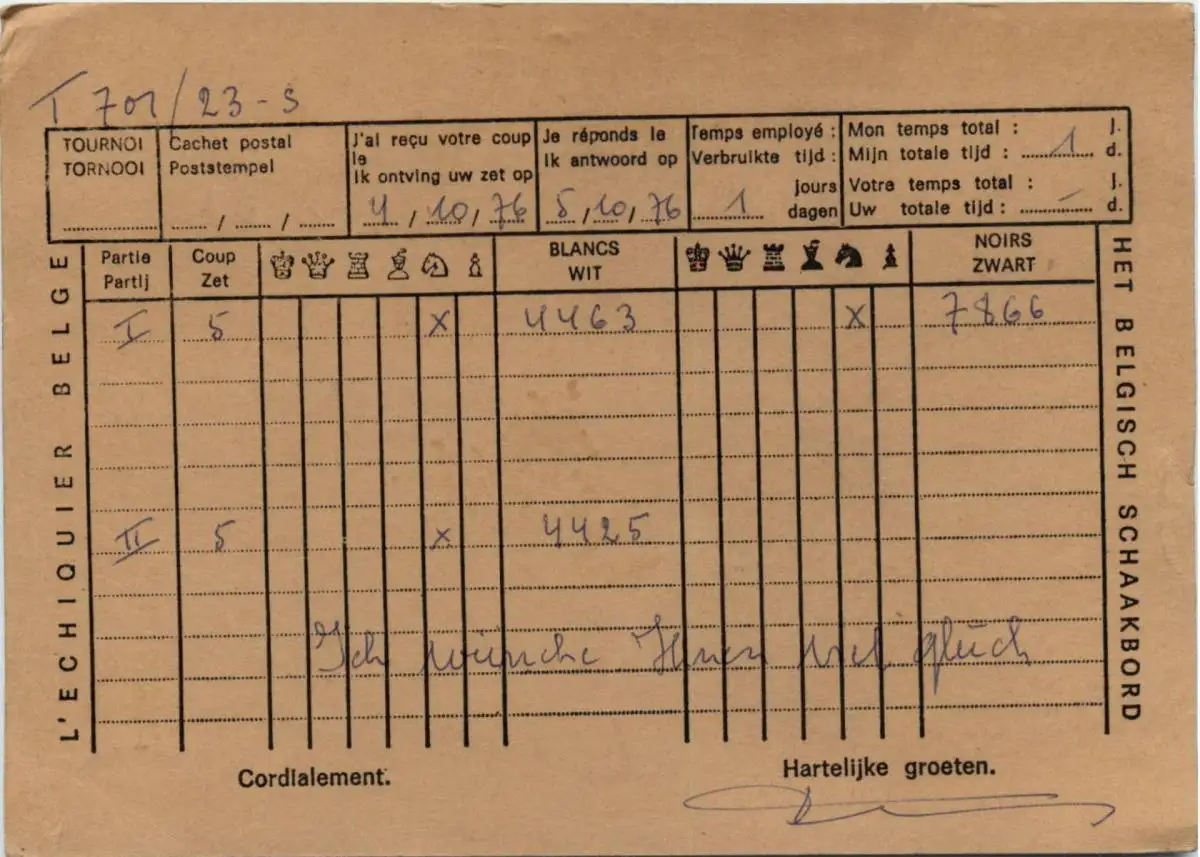 T 701/23-S
TOURNOI
TORNOOI
Cachet postal
Poststempel
...... / ...... / ......
J'ai reçu votre coup
le
Ik ontving uw zet op
4 / 10 / 76
Je réponds le
Ik antwoord op
5 / 10 / 76
Temps employé :
Verbruikte tijd :
jours
1 dagen
Mon temps total : j.
Mijn totale tijd : 1 d.
Votre temps total : j.
Uw totale tijd : - d.
Partie
Partij
Coup
Zet
BLANCS
WIT
NOIRS
ZWART
I 5 x 4463 x 7866
II 5 x 4425
Ich wünsche Ihnen viel glück
L'ECHIQUIER BELGE
HET BELGISCH SCHAAKBORD
Cordialement.
Hartelijke groeten.